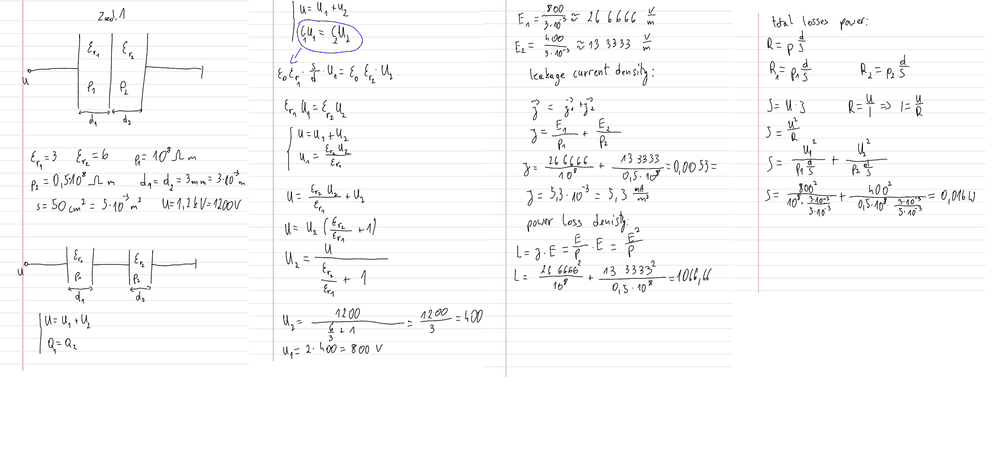 Zad. 1
εr1 εr2
U
ρ1 ρ2
d1 d2
εr1 = 3 εr2 = 6 ρ1 = 10^8 Ω m
ρ2 = 0,5·10^8 Ω m d1 = d2 = 3mm = 3·10^-3 m
s = 50 cm² = 5·10^-3 m² U = 1,2kV = 1200V
εr1 εr2
U
ρ1 ρ2
d1 d2
U = U1 + U2
Q1 = Q2
U = U1 + U2
C1U1 = C2U2
ε0 εr1 · s/d · U1 = ε0 εr2 · U2
εr1 U1 = εr2 U2
U = U1 + U2
U1 = εr2 U2 / εr1
U = εr2 U2 / εr1 + U2
U = U2 (εr2/εr1 + 1)
U2 = U / (εr2/εr1 + 1)
U2 = 1200 / (6/3 + 1) = 1200/3 = 400
U1 = 2·400 = 800 V
E1 = 800 / 3·10^-3 ≈ 26 6666 V/m
E2 = 400 / 3·10^-3 ≈ 13 3333 V/m
leakage current density:
j = j1 + j2
j = E1/ρ1 + E2/ρ2
j = 26 6666 / 10^8 + 13 3333 / 0,5·10^8 = 0,0053 =
j = 5,3·10^-3 = 5,3 mA/m²
power loss denisty:
L = j·E = E/ρ · E = E²/ρ
L = 26 6666² / 10^8 + 13 3333² / 0,5·10^8 = 1066,66
total losses power:
R = ρ d/S
R1 = ρ1 d/S R2 = ρ2 d/S
S = U·J R = U/I => I = U/R
S = U²/R
S = U1² / ρ1 d/S + U2² / ρ2 d/S
S = 800² / 10^8 · 3·10^-3/5·10^-3 + 400² / 0,5·10^8 · 3·10^-3/5·10^-3 = 0,016 W